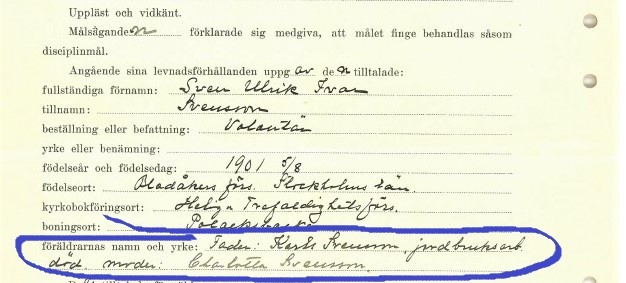 Uppläst och vidkänt.
Målsäganden förklarade sig medgiva, att målet finge behandlas såsom
disciplinmål.
Angående sina levnadsförhållanden uppg av den tilltalade:
fullständiga förnamn: Sven Ulrik Ivar
tillnamn: Svensson
beställning eller befattning: Volontär
yrke eller benämning:
födelseår och födelsedag: 1901 5/8
födelseort: Bladåkers förs. Stockholms län.
kyrkobokföringsort: Helga Trefaldighetsförs.
boningsort: Polacksbacken
föräldrarnas namn och yrke: Fader: Karl Svensson, jordbruksarb.
död. moder: Charlotta Svensson.